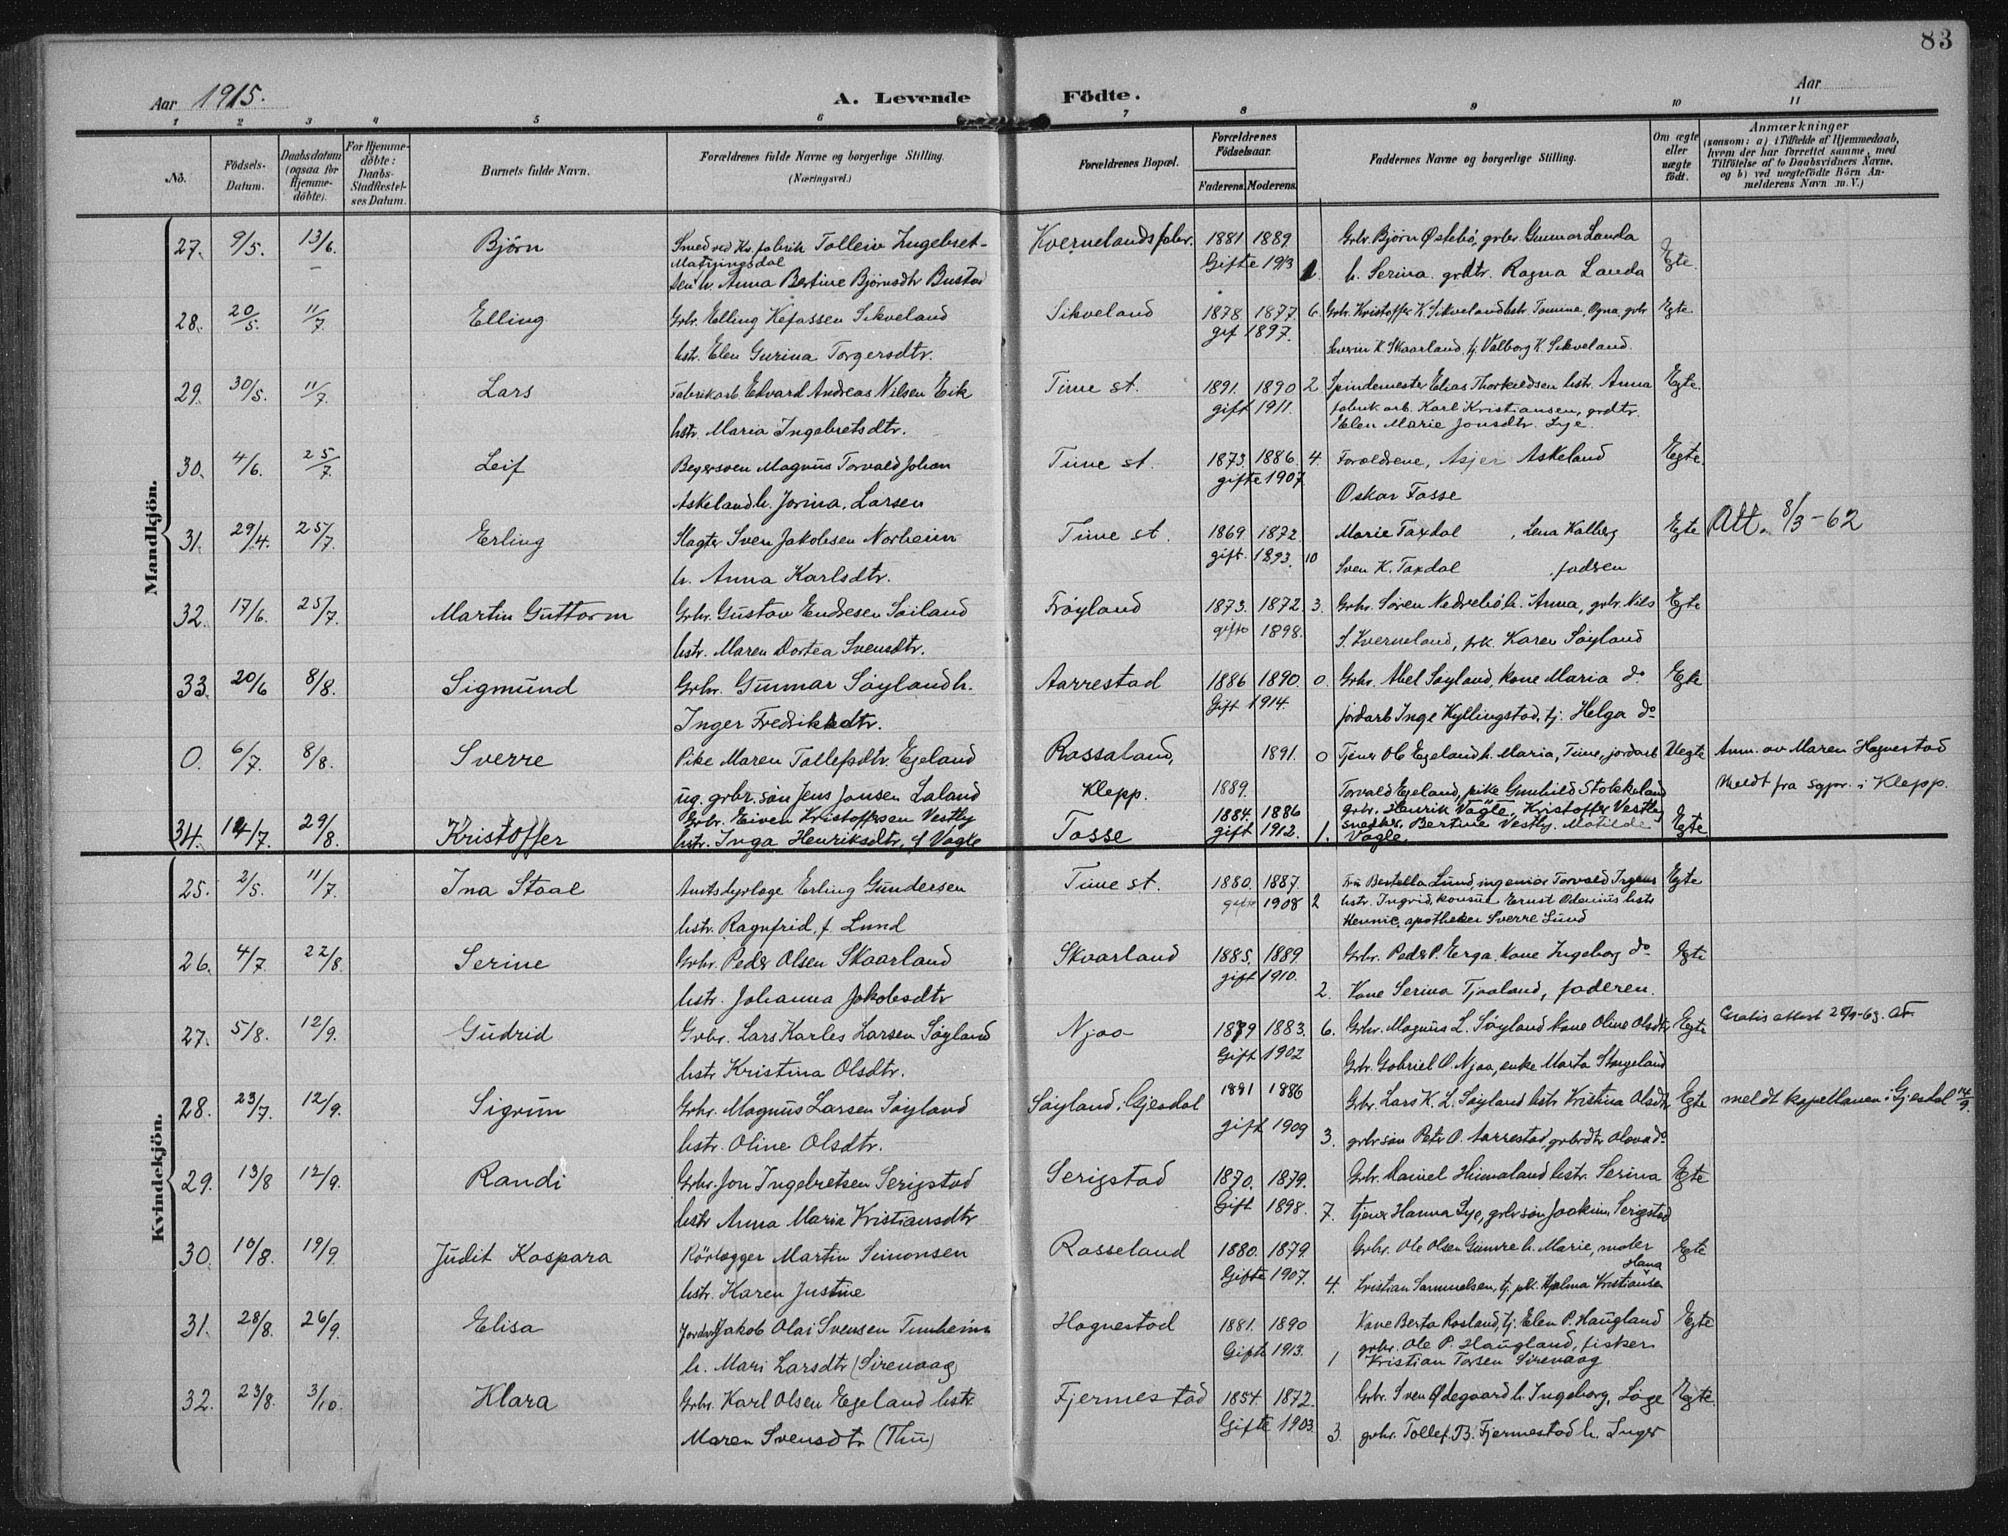 83
Aar 1915.
A. Levende Födte.
Aar
1 2 3 4 5 6 7 8 9 10 11
No.
Födsels-Datum.
Daabsdatum (ogsaa for Hjemme-döbte).
For Hjemme-döbte: Daabs-Stadfæstel-ses Datum.
Barnets fulde Navn.
Forældrenes fulde Navne og borgerlige Stilling.
(Næringsvei.)
Forældrenes Bopæl.
Forældrenes Födselsaar.
Faderens. Moderens.
Faddernes Navne og borgerlige Stilling.
Om ægte eller uægte födt.
Anmærkninger
(saasom: a) i Tilfælde af Hjemmedaab, hvem der har forrettet samme, med Tilföielse af to Daabsvidners Navne, og b) ved uægtefödte Börn An-melderens Navn m. V.)
Mandkjön.
27. 9/5. 13/6. Björn Smed ved Kv. fabrik Tolleiv Ingebret- Kvernelandsfabr. 1881 1889 Grbr. Bjørn Østebø, grbr. Gunnar Landa Egte.
Matningsdal
sen h. Anna Bertine Bjørnsdtr Bustad Gifte 1913 1. h. Serina. grdtr. Ragna Landa
28. 20/5. 11/7 Elling Grbr. Elling Kefassen Sikveland Sikveland 1878 1877 6. Grbr. Kristoffer K. Sikveland hstr. Tomine, Ogna, grbr Egte.
hstr. Elen Gurina Torgersdtr. gif 1897. Severin K. Skaarland, tj. Valborg K. Sikveland.
29. 30/5. 11/7. Lars Fabrikarb. Edvard Andreas Nilsen Eik Time st. 1891. 1890 2 Spindemester Elias Thorkildsen hstr. Anna Egte.
hstr. Maria Ingebretsdtr. gift 1911. fabrikarb. Karl Kristiansen, grdtr.
Elen Marie Jonsdtr. Lye.
30. 4/6. 25/7. Leif Magnus Torvald Johan Time st. 1873. 1886. 4. Foreldrene, Asjer Askeland Egte.
Askeland h. Jorina, Larsen gifte 1907 Oskar Fosse
31. 29/4. 25/7. Erling Slagter Sven Jakobsen Norheim Time st. 1869. 1872 Marie Taxdal, Lena Kalberg Egte Att. 8/3-62
h. Anna Karlsdtr. gift. 1893. 10 Sven K. Taxdal fadren
32. 17/6. 25/7. Martin Guttorm Grbr. Gustav Endresen Søiland Frøyland 1873. 1872. 3. Grbr. Søren Nedrebø h. Anna, grbr. Nils Egte
hstr. Maren Dortea Svensdtr. gifte 1898. S. Kverneland, frk. Karen Søyland
33. 20/6 8/8. Sigmund Grbr. Gunnar Søyland h. Aarrestad 1886 1890. 0. Grbr. Abel Søyland, kone Maria do Egte
Inger Fredrikkdtr. Gift 1914. jordarb Inge Kyllingstad, tj. Helga do
0. 6/7. 8/8. Sverre Pike Maren Tollefsdtr. Egeland Rossaland, 1891. 0 Tjener Ole Egeland h. Maria, Time, jordarb Uegte Anm. av Maren Hognestad
ug. grbr. søn Jens Jonsen Laland Klepp. 1889. Torvald Egeland, pike Gunhild Stokkeland Meldt fra sgpr. i Klepp.
34. 14/7. 29/8. Kristoffer Grbr. Eiven Kristoffersen Vestly Fosse 1884. 1886 grbr. Henrik Vagle, Kristoffer Vestly, Egte
hstr. Inga Henriksdtr, f Vagle gift 1912. 1. snedker, Bertine Vestly, Matilde
Vagle.
Kvindekjön.
25. 2/5. 11/7. Ina Staal Amtsdyrlæge Erling Gundersen Time st. 1880. 1887. Fru Bertella Lund, ingeniør Torvald Irgens Egte
hstr. Ragnfrid, f. Lund gifte 1908 2 hstr. Ingrid, konsul Ernst hstr
Hennie, apotheker Sverre Lund
26. 4/7. 22/8. Serine Grbr. Peder Olsen Skaarland Skaarland 1885. 1889. Grbr. Peder P. Erga. kone Ingeborg do Egte
hstr. Johanna Jakobsdtr gift 1910. 2. Kone Serina Tjaaland, faderen.
27. 5/8. 12/9. Gudrid Grbr. Lars Karles Larsen Søyland Njaa 1879 1883. 6. Grbr. Magnus L. Søyland kone Oline Olsdtr Egte Gratis attest 25/9-63.
hstr Kristina Olsdtr. Gift 1902 Grbr. Gabriel O. Njaa, enke Marta Storgeland
28. 23/7. 12/9. Sigrun Grbr. Magnus Larsen Søyland Søyland, Gjesdal 1881 1886 Grbr. Lars K. L. Søyland hstr Kristina Olsdtr Egte meldt kapellanen i Gjesdal 14/9.
hstr. Oline Olsdtr. gift 1909 3. grbrsøn Peter O. Aarrestad, grbrdtr Olova do
29. 13/8 12/9. Randi Grbr. Jon Ingebretsen Serigstad Serigstad 1870. 1879. Grbr. Daniel Heimaland hstr. Serina Egte
hstr Anna Maria Kristiansdtr Gift 1898. 7. tjener Hanna Lye, grbrsøn Joakim Serigstad
30. 10/8. 19/9. Judit Kaspara Rörlægger Martin Simonsen Rosseland 1880. 1879. Grbr. Ole Olsen Gimre h. Marie, maler Egte
hstr. Karen Justine Gifte 1907. 4. Kristian Samuelsen, tj. pk. Hjalma Kristiansen
Hana
31. 28/8. 26/9. Elisa Jordarb. Jakob Olai Svensen Tunheim Hognestad 1881. 1890 Kone Berta Rosland, tj. Elen P. Haugland Egte
h. Mari Larsdtr (Sirevaag) Gift 1913. 1 grbr. Ole P. Haugland, fisker
Kristian Torsen Sirevaag
32. 23/8. 3/10. Klara Grbr. Karl Olsen Egeland hstr. Fjermestad 1854. 1872. Grbr. Sven Ødegaard h. Ingeborg, Løge Egte.
Maren Svensdtr (Thu) Gifte 1903. 3. grbr. Tollef. B. Fjermestad h. Inger